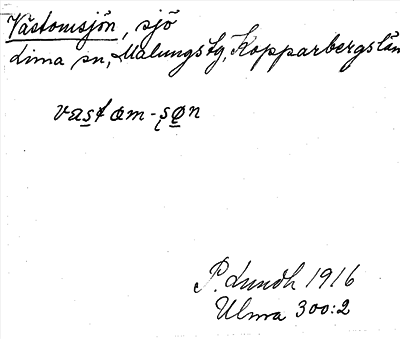 Västomsjön, sjö
Lima sn, Malungs tg, Kopparbergs län
vastom-ṣøn
P. Lundh 1916
Ulma 300:2